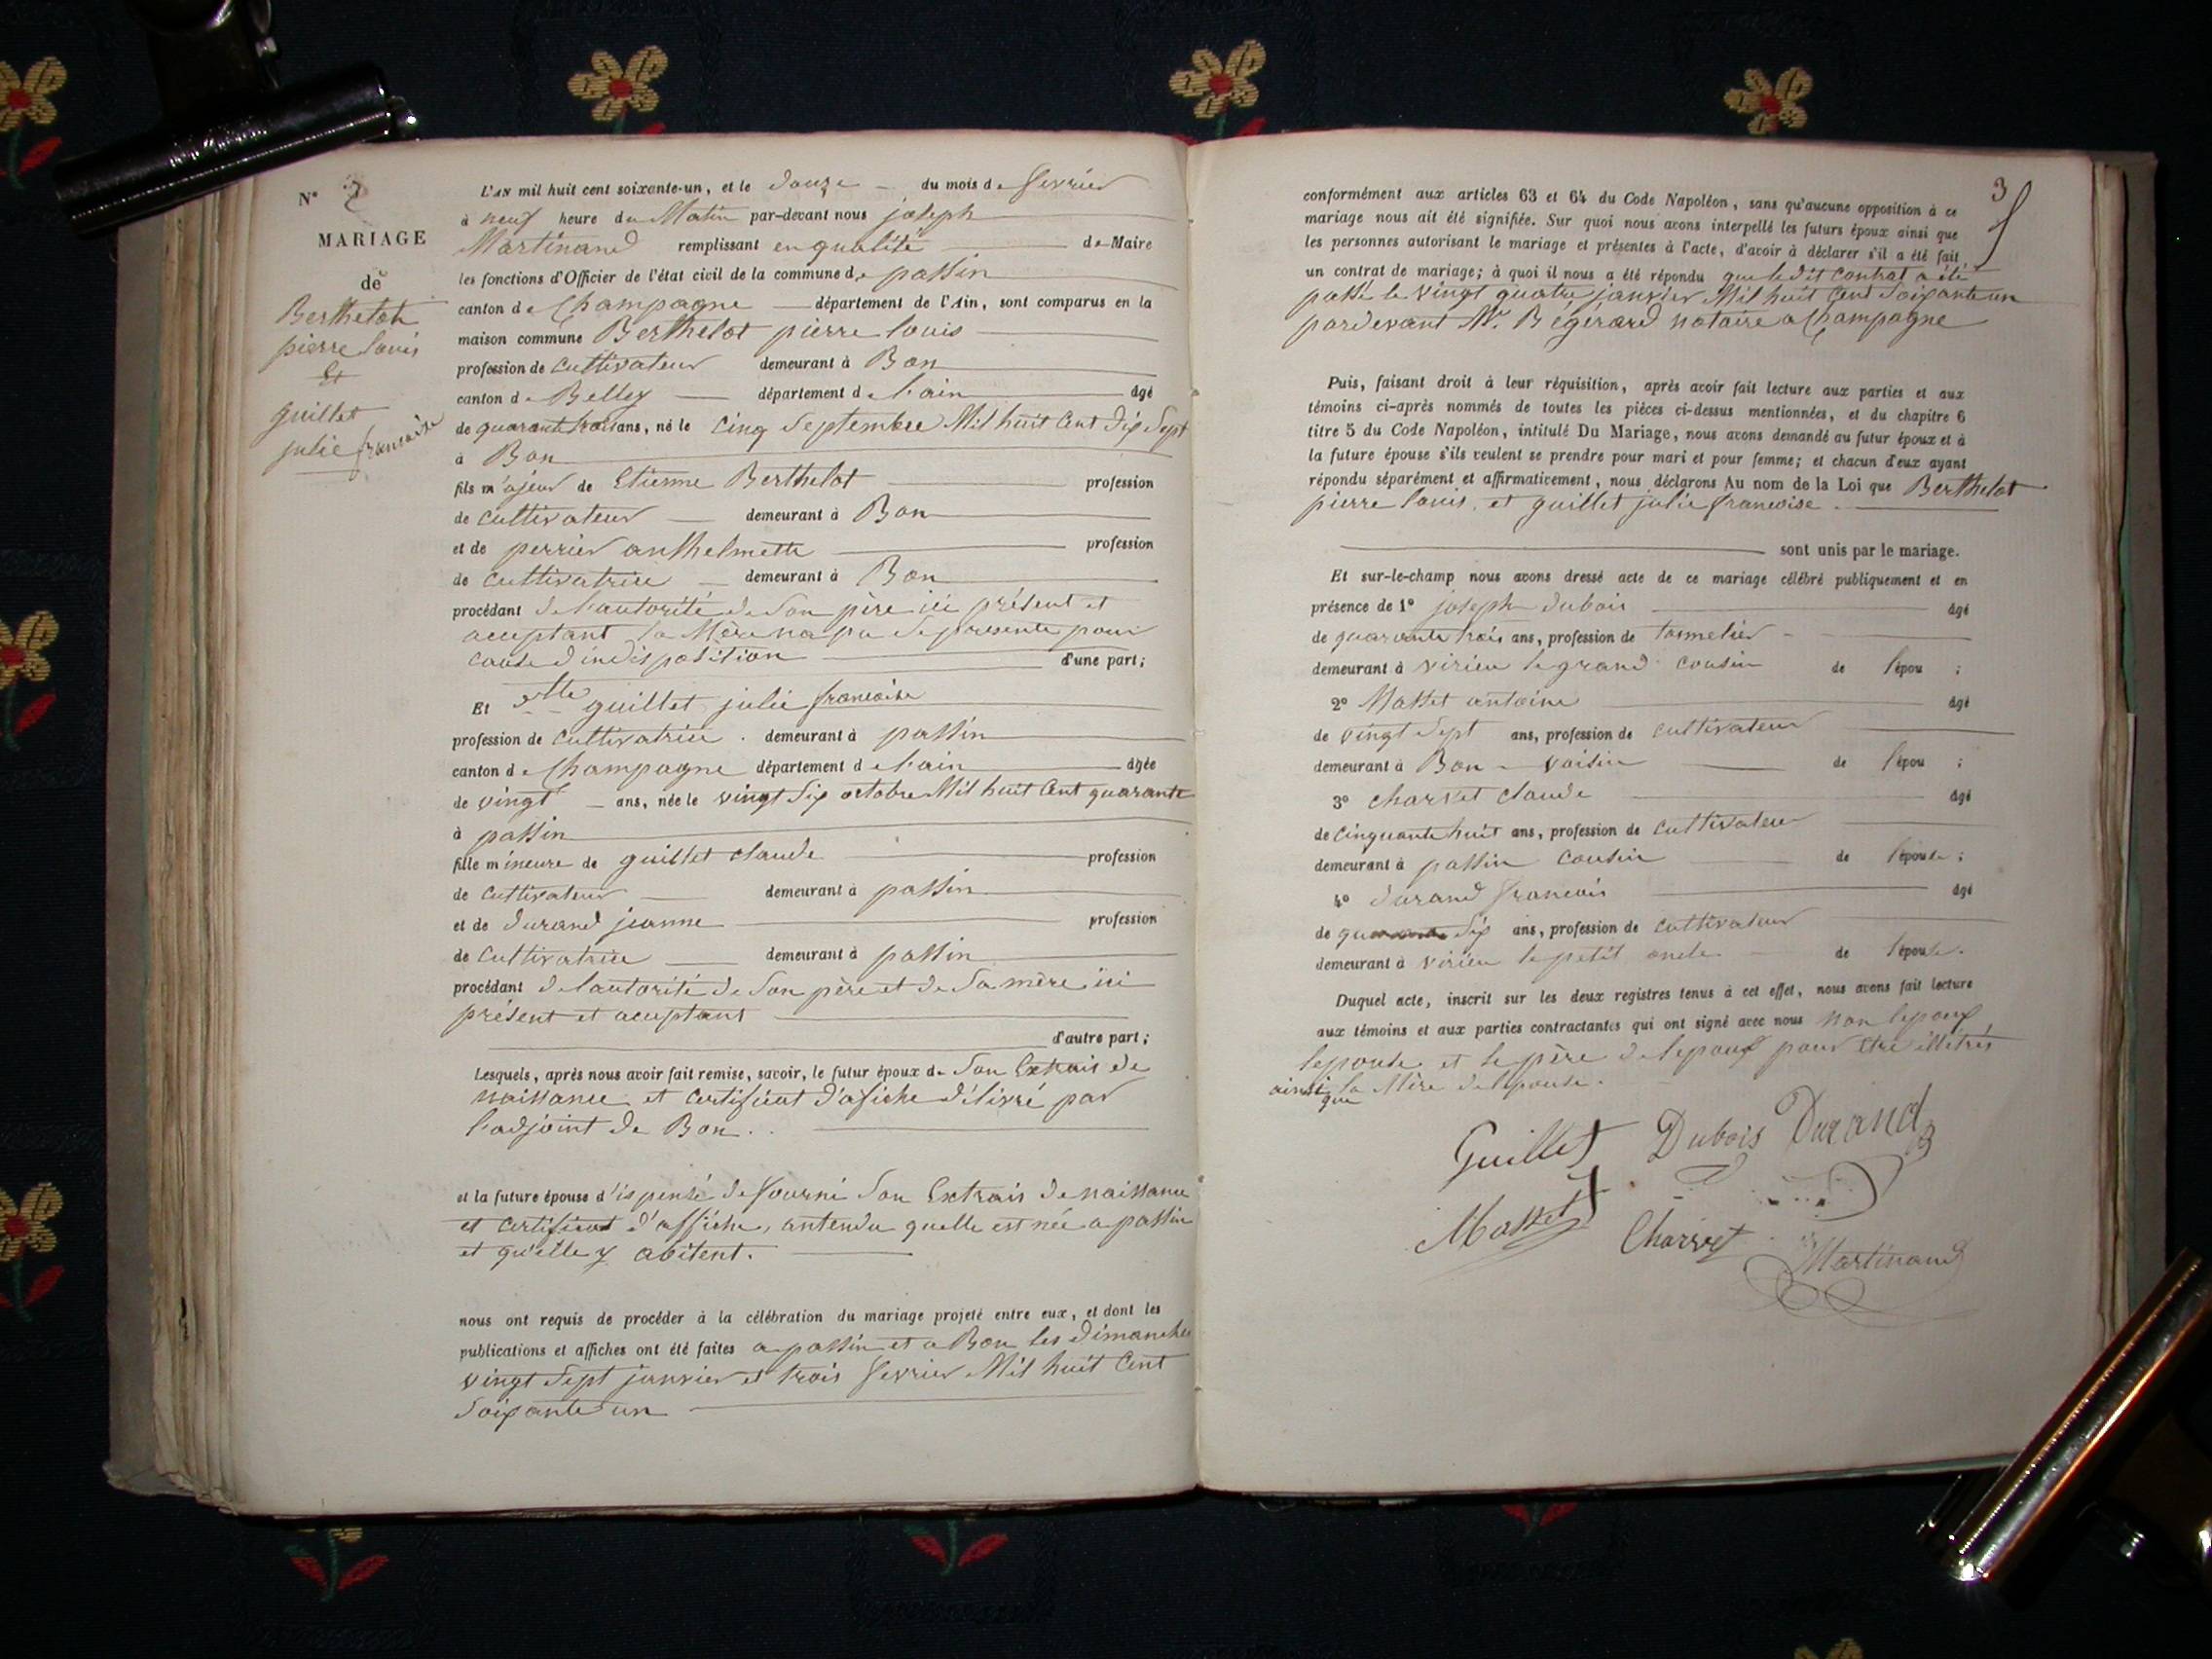 N° 2
MARIAGE
de
Berthelot
pierre louis
Et
guillet
julie francoise
L'AN mil huit cent soixante-un, et le douze du mois de fevrier
à neuf heure du Matin par-devant nous joseph
Martinand remplissant en qualité de Maire
les fonctions d'Officier de l'état civil de la commune de passin
canton de Champagne département de l'Ain, sont comparus en la
maison commune Berthelot pierre louis
profession de cultivateur demeurant à Bon
canton de Belley département de l'ain âgé
de quarante trois ans, né le cinq septembre Mil huit cent dix sept
à Bon
fils majeur de Etienne Berthelot profession
de cultivateur demeurant à Bon
et de perrier anthelmette profession
de cultivatrice demeurant à Bon
procédant de l'autorité de son père ici présent et
acceptant la Mère na pu se presente pour
cause d'indisposition d'une part;
Et dlle guillet julie francoise
profession de cultivatrice . demeurant à passin
canton de Champagne département de l'ain âgée
de vingt ans, née le vingt six octobre Mil huit cent quarante
à passin
fille mineure de guillet claude profession
de cultivateur demeurant à passin
et de durand jeanne profession
de cultivatrice demeurant à passin
procédant de l'autorité de son père et de sa mère ici
présent et acceptant
d'autre part;
Lesquels, après nous avoir fait remise, savoir, le futur époux de son Extrais de
naissance et certificat d'afiche délivré par
l'adjoint de Bon . .
et la future épouse dispensé de fourni son Extrais de naissance
et certificat d'affiche, antendu quelle est née a passin
et qu'elle y abitent.
nous ont requis de procéder à la célébration du mariage projeté entre eux, et dont les
publications et affiches ont été faites a passin et a Bon les dimanches
vingt sept janvier et trois fevrier Mil huit cent
soixante un
3
conformément aux articles 63 et 64 du Code Napoléon, sans qu'aucune opposition à ce
mariage nous ait été signifiée. Sur quoi nous avons interpellé les futurs époux ainsi que
les personnes autorisant le mariage et présentes à l'acte, d'avoir à déclarer s'il a été fait
un contrat de mariage; à quoi il nous a été répondu que le dit contrat a été
passé le vingt quatre janvier Mil huit cent soixante un
pardevant Mr. Begerard notaire a Champagne
Puis, faisant droit à leur réquisition, après avoir fait lecture aux parties et aux
témoins ci-après nommés de toutes les pièces ci-dessus mentionnées, et du chapitre 6
titre 5 du Code Napoléon, intitulé Du Mariage, nous avons demandé au futur époux et à
la future épouse s'ils veulent se prendre pour mari et pour femme; et chacun d'eux ayant
répondu séparément et affirmativement, nous déclarons Au nom de la Loi que Berthelot
pierre louis, et guillet julie francoise .
sont unis par le mariage.
Et sur-le-champ nous avons dressé acte de ce mariage célébré publiquement et en
présence de 1° joseph dubois âgé
de quarante trois ans, profession de tonnelier
demeurant à virieu le grand cousin de l'épou ;
2° Masset antoine âgé
de vingt sept ans, profession de cultivateur
demeurant à Bon voisin de l'épou ;
3° charvet claude âgé
de cinquante huit ans, profession de cultivateur
demeurant à passin cousin de l'épouse ;
4° durand francois âgé
de quarante six ans, profession de cultivateur
demeurant à virieu le petit oncle de l'épouse.
Duquel acte, inscrit sur les deux registres tenus à cet effet, nous avons fait lecture
aux témoins et aux parties contractantes qui ont signé avec nous non lepoux
lepouse et le père de lepoux pour être illétrés
ainsi que la Mère de lepouse .
Guillet Dubois Durand
Masset Charvet
Martinand